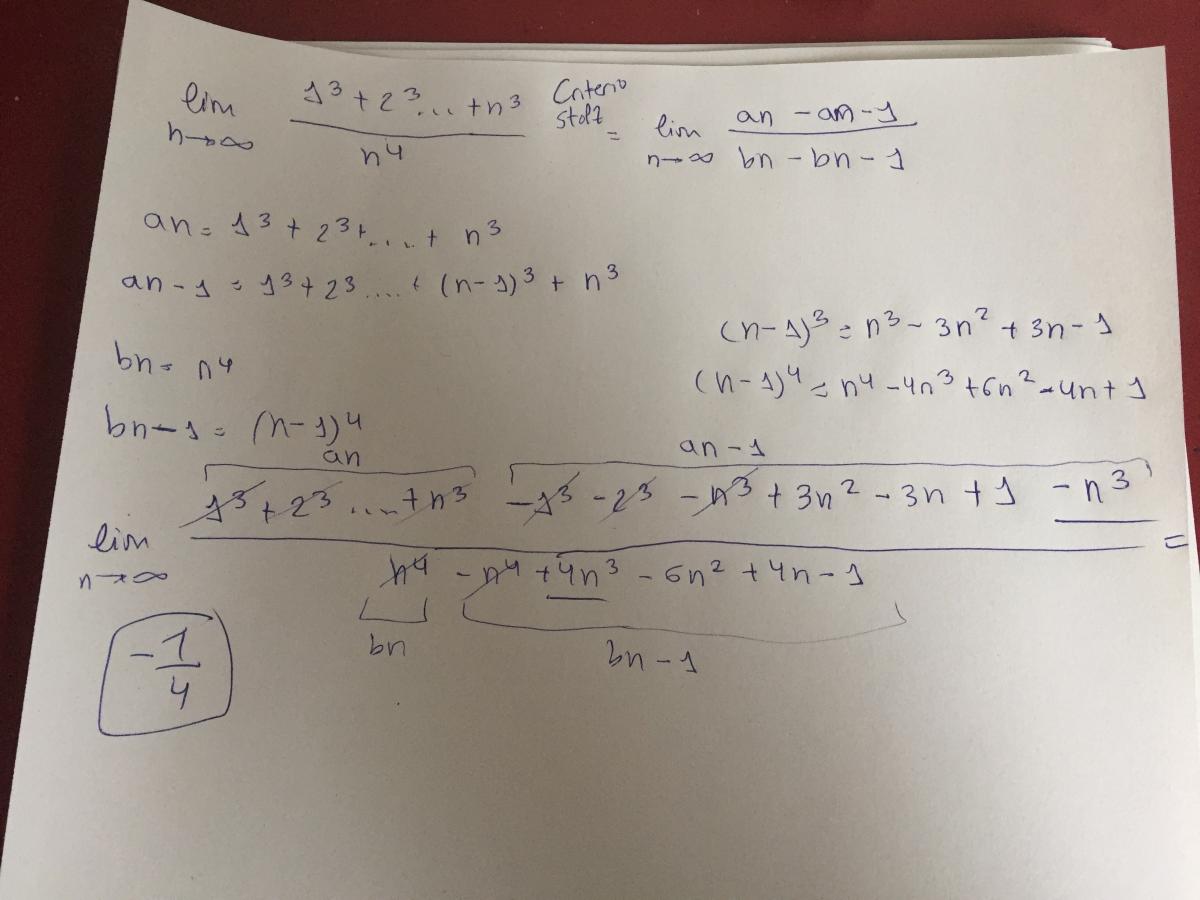 lim n→∞ (1³ + 2³ ... + n³) / n⁴ Criterio stolz = lim n→∞ (an - an - 1) / (bn - bn - 1)
an = 1³ + 2³ + .... + n³
an - 1 = 1³ + 2³ .... + (n-1)³ + n³
(n-1)³ = n³ - 3n² + 3n - 1
bn = n⁴
(n-1)⁴ = n⁴ - 4n³ + 6n² - 4n + 1
bn - 1 = (n-1)⁴
an an - 1
lim n→∞ (1³ + 2³ .... + n³ - 1³ - 2³ - n³ + 3n² - 3n + 1 - n³) / (n⁴ - n⁴ + 4n³ - 6n² + 4n - 1) =
bn bn - 1
-1/4